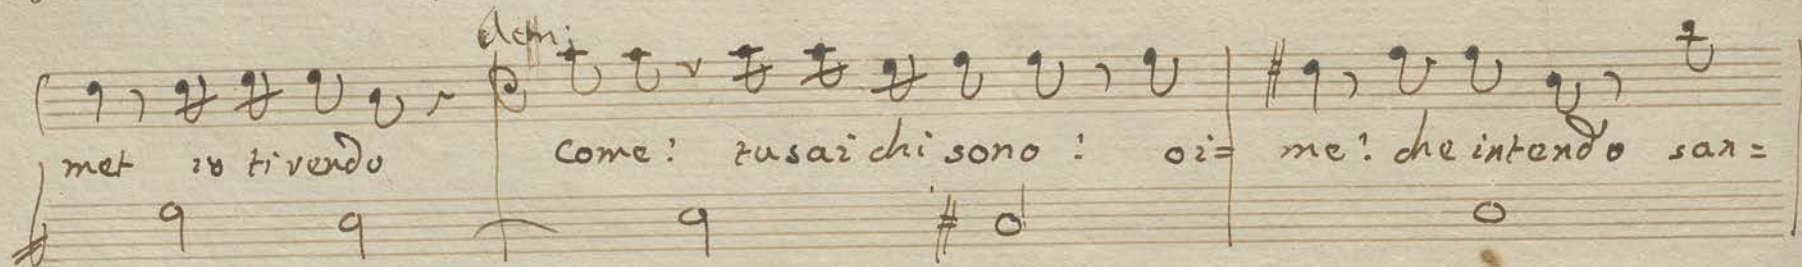 dem:
met io ti rendo come? tu sai chi sono? oi= me? che intendo san=